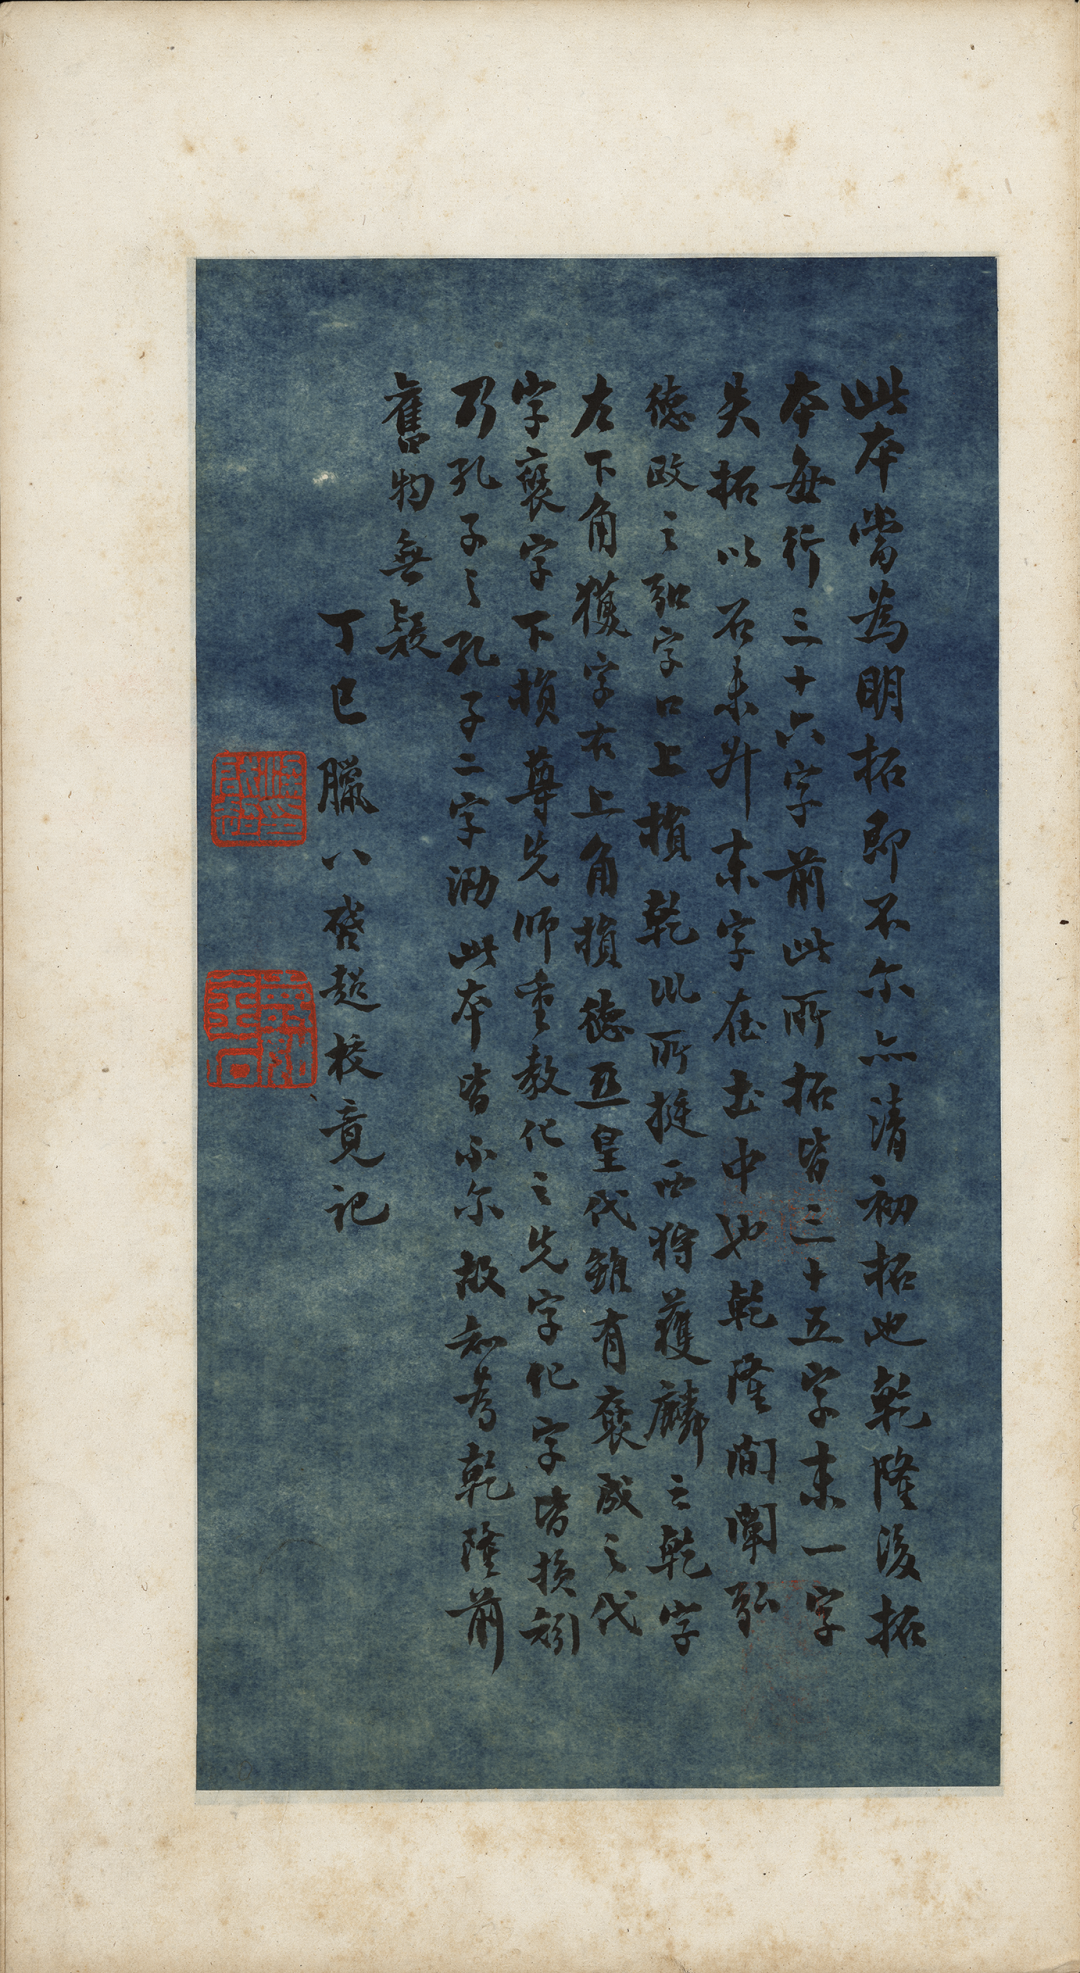 此本當為明拓即不尔亦清初拓也乾隆後拓
本每行三十六字前此所拓皆三十五字末一字
失拓以石未升末字在土中也乾隆間闡弘
德政之弘字口上損乾巛所挺西狩獲麟之乾字
左下角獲字右上角損德亞皇代雖有褒成之代
字褒字下損尊先师重教化之先字化字皆損矧
乃孔子之孔子二字泐此本皆不尔故知為乾隆前
舊物無疑
丁巳臘八啓超校竟記
梁印啟超
壽如金石